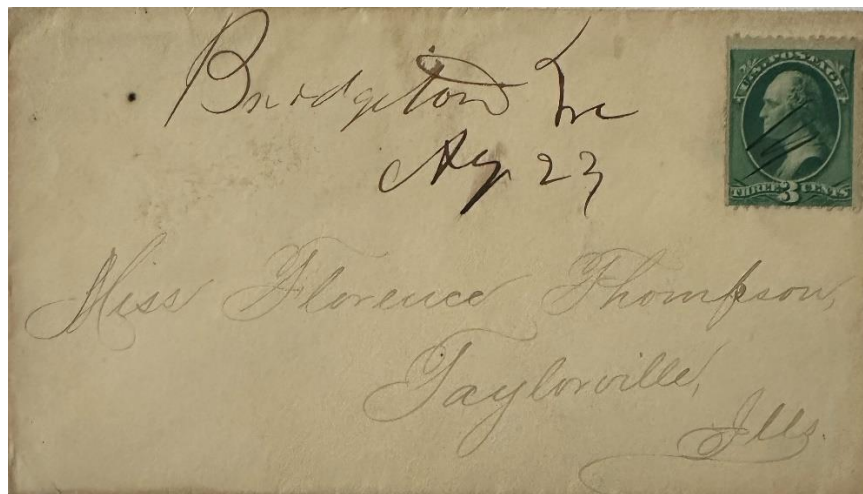 Bridgeton Inc
Ag. 23
U.S. POSTAGE
THREE 3 CENTS
Miss Florence Thompson,
Taylorville,
Ills.